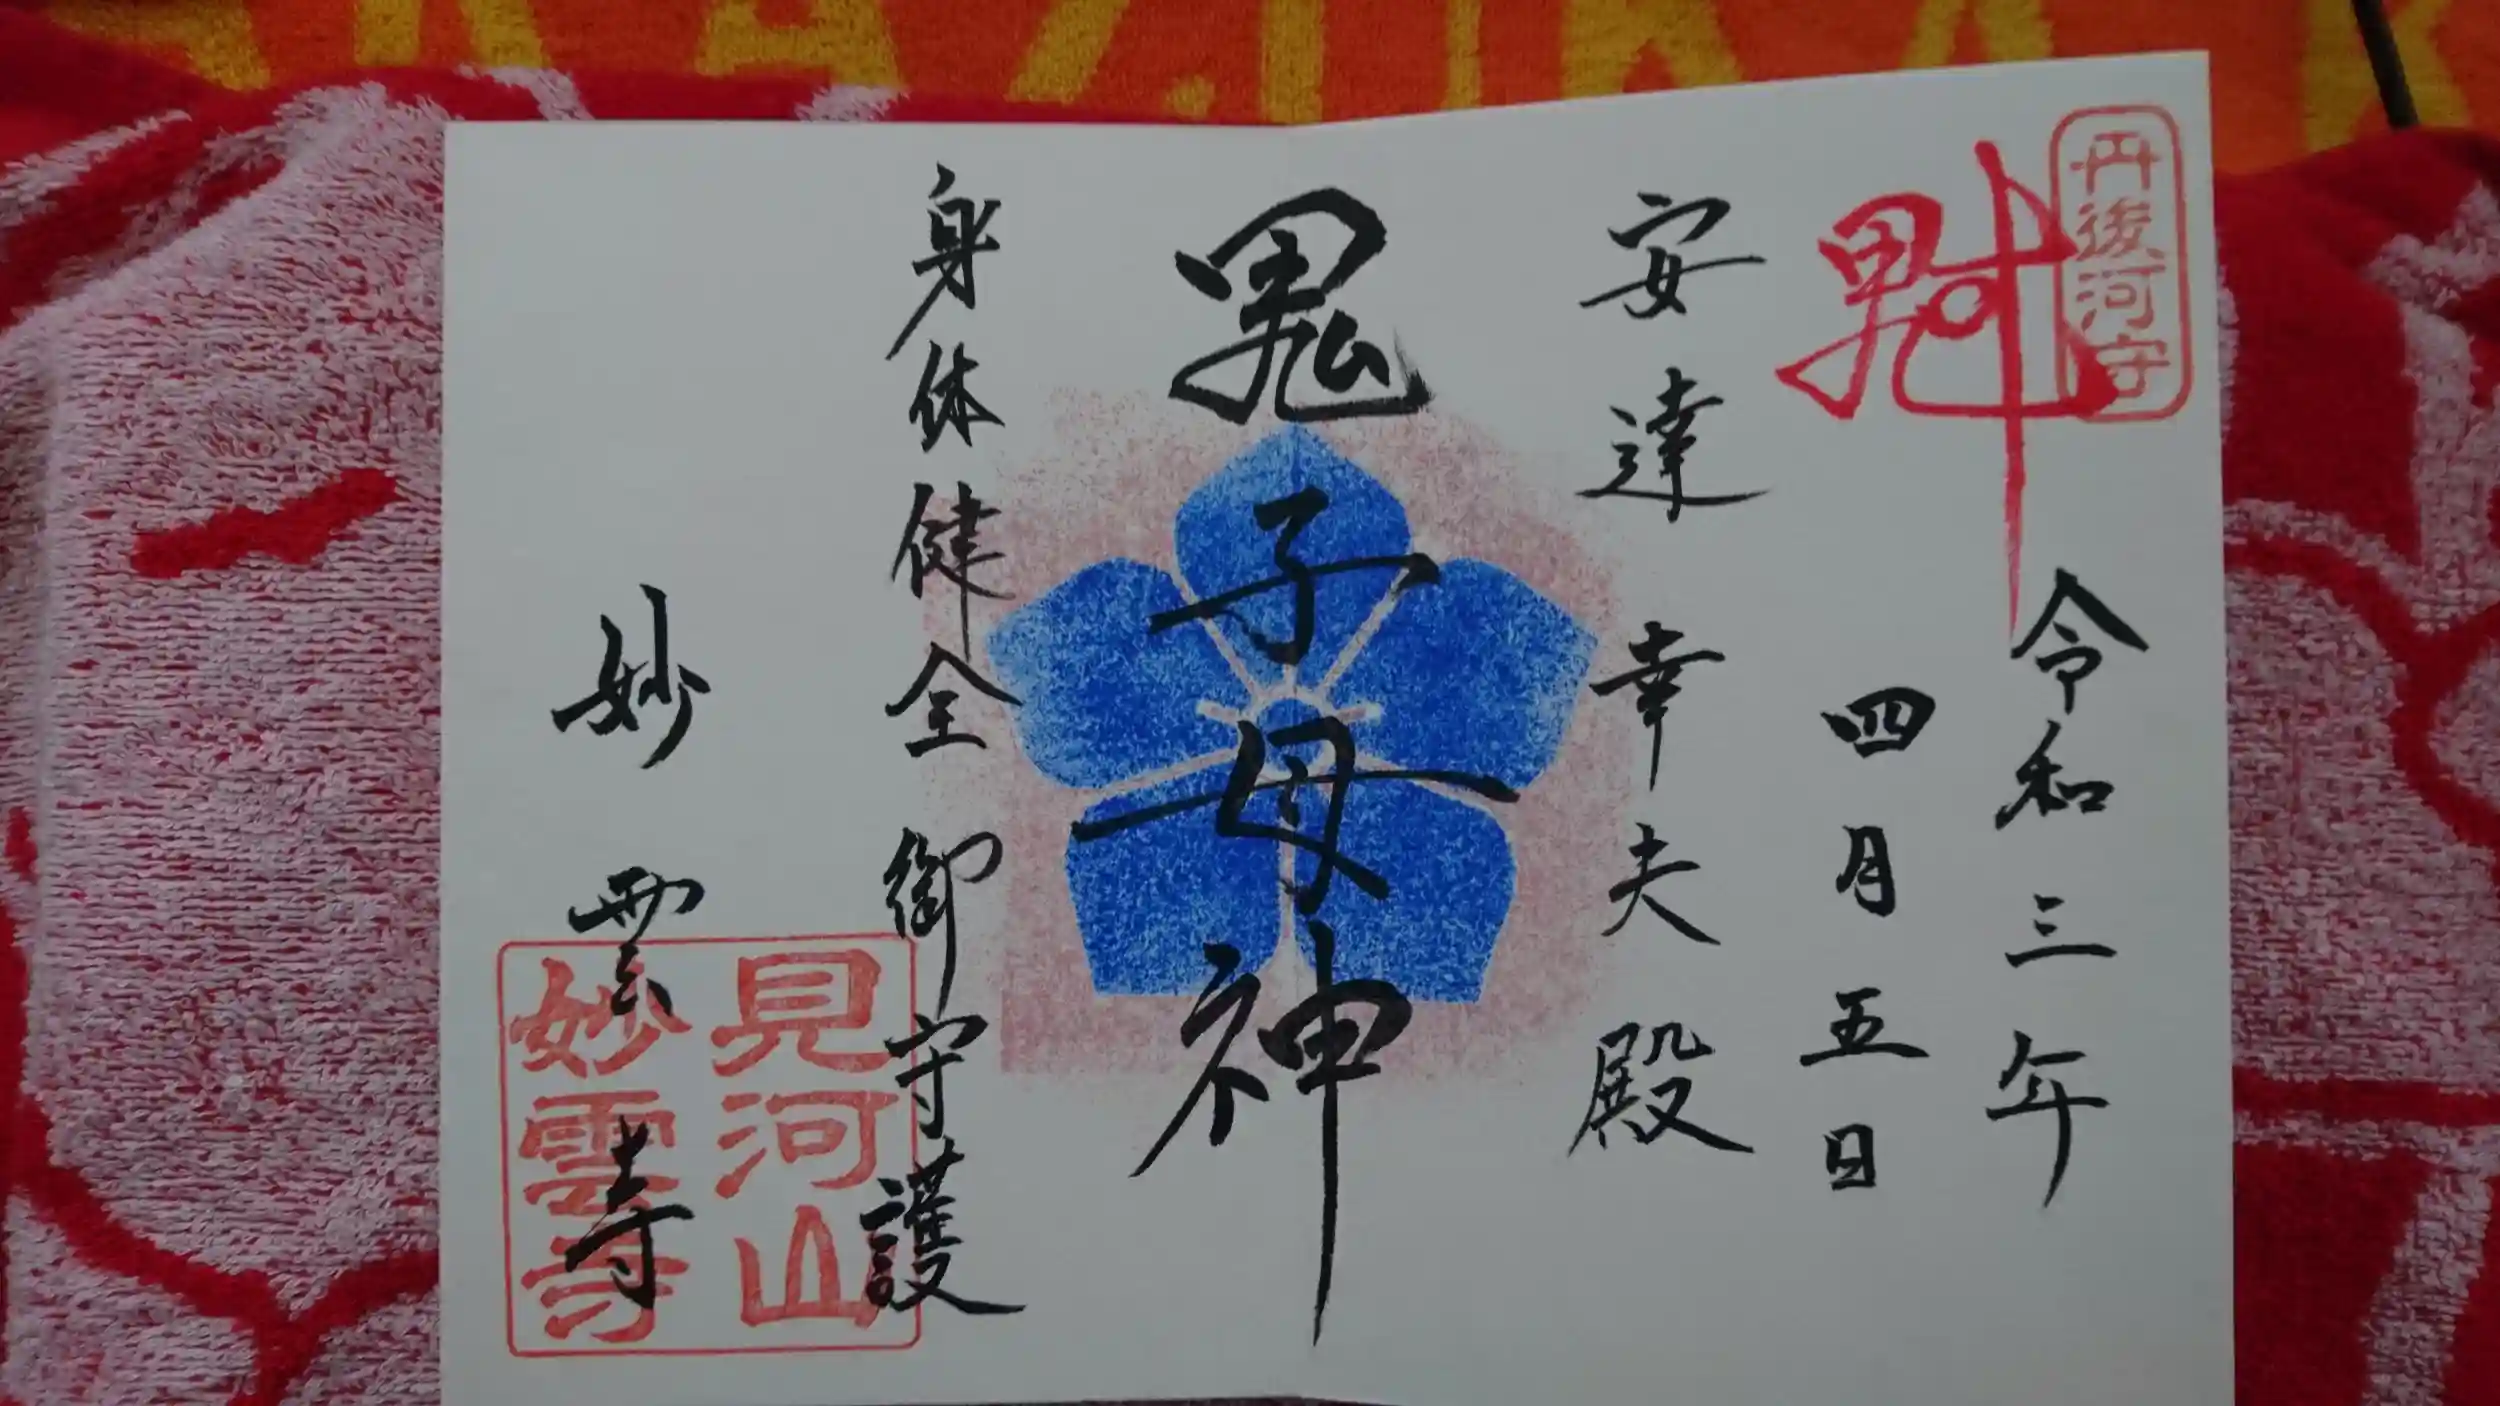 丹後河守
魁
令和三年
四月五日
安達幸夫殿
鬼子母神
身体健全御守護
見河山
妙雲寺
妙雲寺